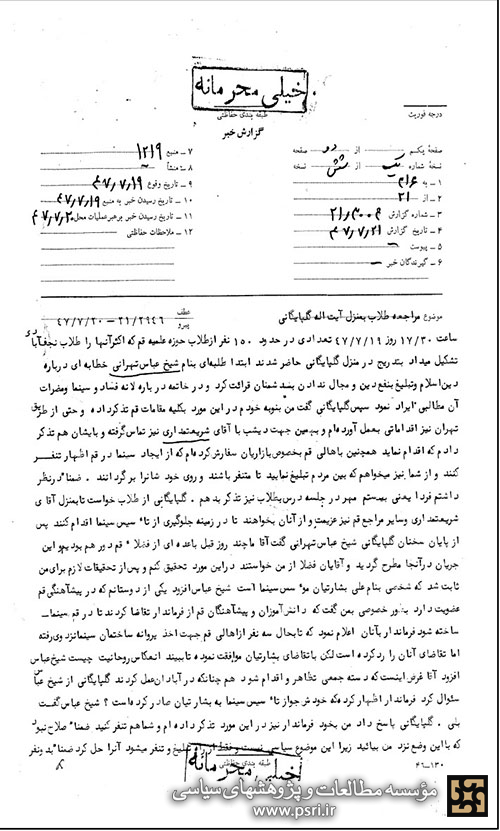 خیلی محرمانه
درجه فوریت
طبقه بندی حفاظتی
گزارش خبر
صفحه یکم از دو صفحه
نسخه شماره یک از شش نسخه
۱ – به ۳۱۶
۲ – از ۲۱
۳ – شماره گزارش
۴ – تاریخ گزارش ۴۷/۷/۲۱
۵ – پیوست –
۶ – گیرندگان خبر –
۷ – منبع ۱۲۱۹
۸ – منشأ
۹ – تاریخ وقوع ۴۷/۷/۱۹
۱۰ – تاریخ رسیدن خبر به منبع ۴۷/۷/۱۹
۱۱ – تاریخ رسیدن خبر برهبر عملیات محل ۴۷/۷/۲۰
۱۲ – ملاحظات حفاظتی
موضوع مراجعه طلاب بمنزل آیت اله گلپایگانی
عطف
پیرو
۲۱/۲۹۴۶ – ۴۷/۷/۲۰
ساعت ۱۷/۳۰ روز ۴۷/۷/۱۹ تعدادی در حدود ۱۵۰ نفر از طلاب حوزه علمیه قم که اکثر آنها را طلاب نجف آبادی
تشکیل میداد بتدریج در منزل گلپایگانی حاضر شدند ابتدا طلبه‌ای بنام شیخ عباس تهرانی خطابه ای درباره
دین اسلام و تبلیغ بنفع دین و مجال ندادن بضد دشمنان قرائت کرد و در خاتمه درباره لانه فساد و سینما و مضرات
آن مطالبی ایراد نمود سپس گلپایگانی گفت من بنوبه خودم در این مورد بکلیه مقامات قم تذکر داده و حتی از طریق
تهران نیز اقداماتی بعمل آورده‌ام و بهمین جهت دیشب با آقای شریعتمداری نیز تماس گرفته و بایشان هم تذکر
دادم که اقدام نماید همچنین باهالی قم بخصوص بازاریان سفارش کرده‌ام که از ایجاد سینما در قم اظهار تنفر
کنند و از شما نیز میخواهم که بین مردم تبلیغ نمایید تا متنفر باشند و روی خود شانرا برگردانند . ضمناً در نظر
داشتم فردا یعنی بیستم مهر در جلسه درس بطلاب نیز تذکر بدهم . گلپایگانی از طلاب خواست تا بمنزل آقای
شریعتمداری و سایر مراجع قم نیز عزیمت و از آنان بخواهند تا در زمینه جلوگیری از تاسیس سینما اقدام کنند پس
از پایان سخنان گلپایگانی شیخ عباس تهرانی گفت آقا ما چند روز قبل با عده ای از فضلاء قم دور هم بودیم و این
جریان در آنجا مطرح گردید و آقایان فضلا از من خواستند در این مورد تحقیق کنم و پس از تحقیقات لازم برای من
ثابت شد که شخصی بنام علی بشارتیان موسس سینما است شیخ عباس افزود یکی از دوستانم که در پیشآهنگی قم
عضویت دارد بطور خصوصی بمن گفت که دانش آموزان و پیشآهنگان قم از فرماندار تقاضا کردند تا در قم سینما
ساخته شود فرماندار بآنان اعلام نمود که تابحال سه نفر از اهالی قم جهت اخذ پروانه ساختمان سینما نزد وی رفته
اما تقاضای آنان را رد کرده است لکن با تقاضای بشارتیان موافقت نموده تا ببیند انعکاس روحانیت چیست شیخ عباس
افزود آقا غرض اینست که دسته جمعی تظاهر و اقدام شود هم چنانکه در آبادان عمل کردند گلپایگانی از شیخ عباس
سئوال کرد فرماندار اظهار کرده که خودش جواز تاسیس سینما به بشارتیان صادر کرده است ؟ شیخ عباس گفت
بلی . گلپایگانی پاسخ داد من بخود فرماندار نیز در این مورد تذکر داده‌ام و شما هم تنفر کنید ضمناً صلاح نبود
که با این وضع نزد من بیائید زیرا این موضوع سیاسی نیست و فقط تبلیغ و تنفر میشود آنرا حل کرد ضمناً بدونفر
طبقه بندی حفاظتی
خیلی محرمانه
۱۳۰–۴۶
مؤسسه مطالعات و پژوهشهای سیاسی
www.psri.ir